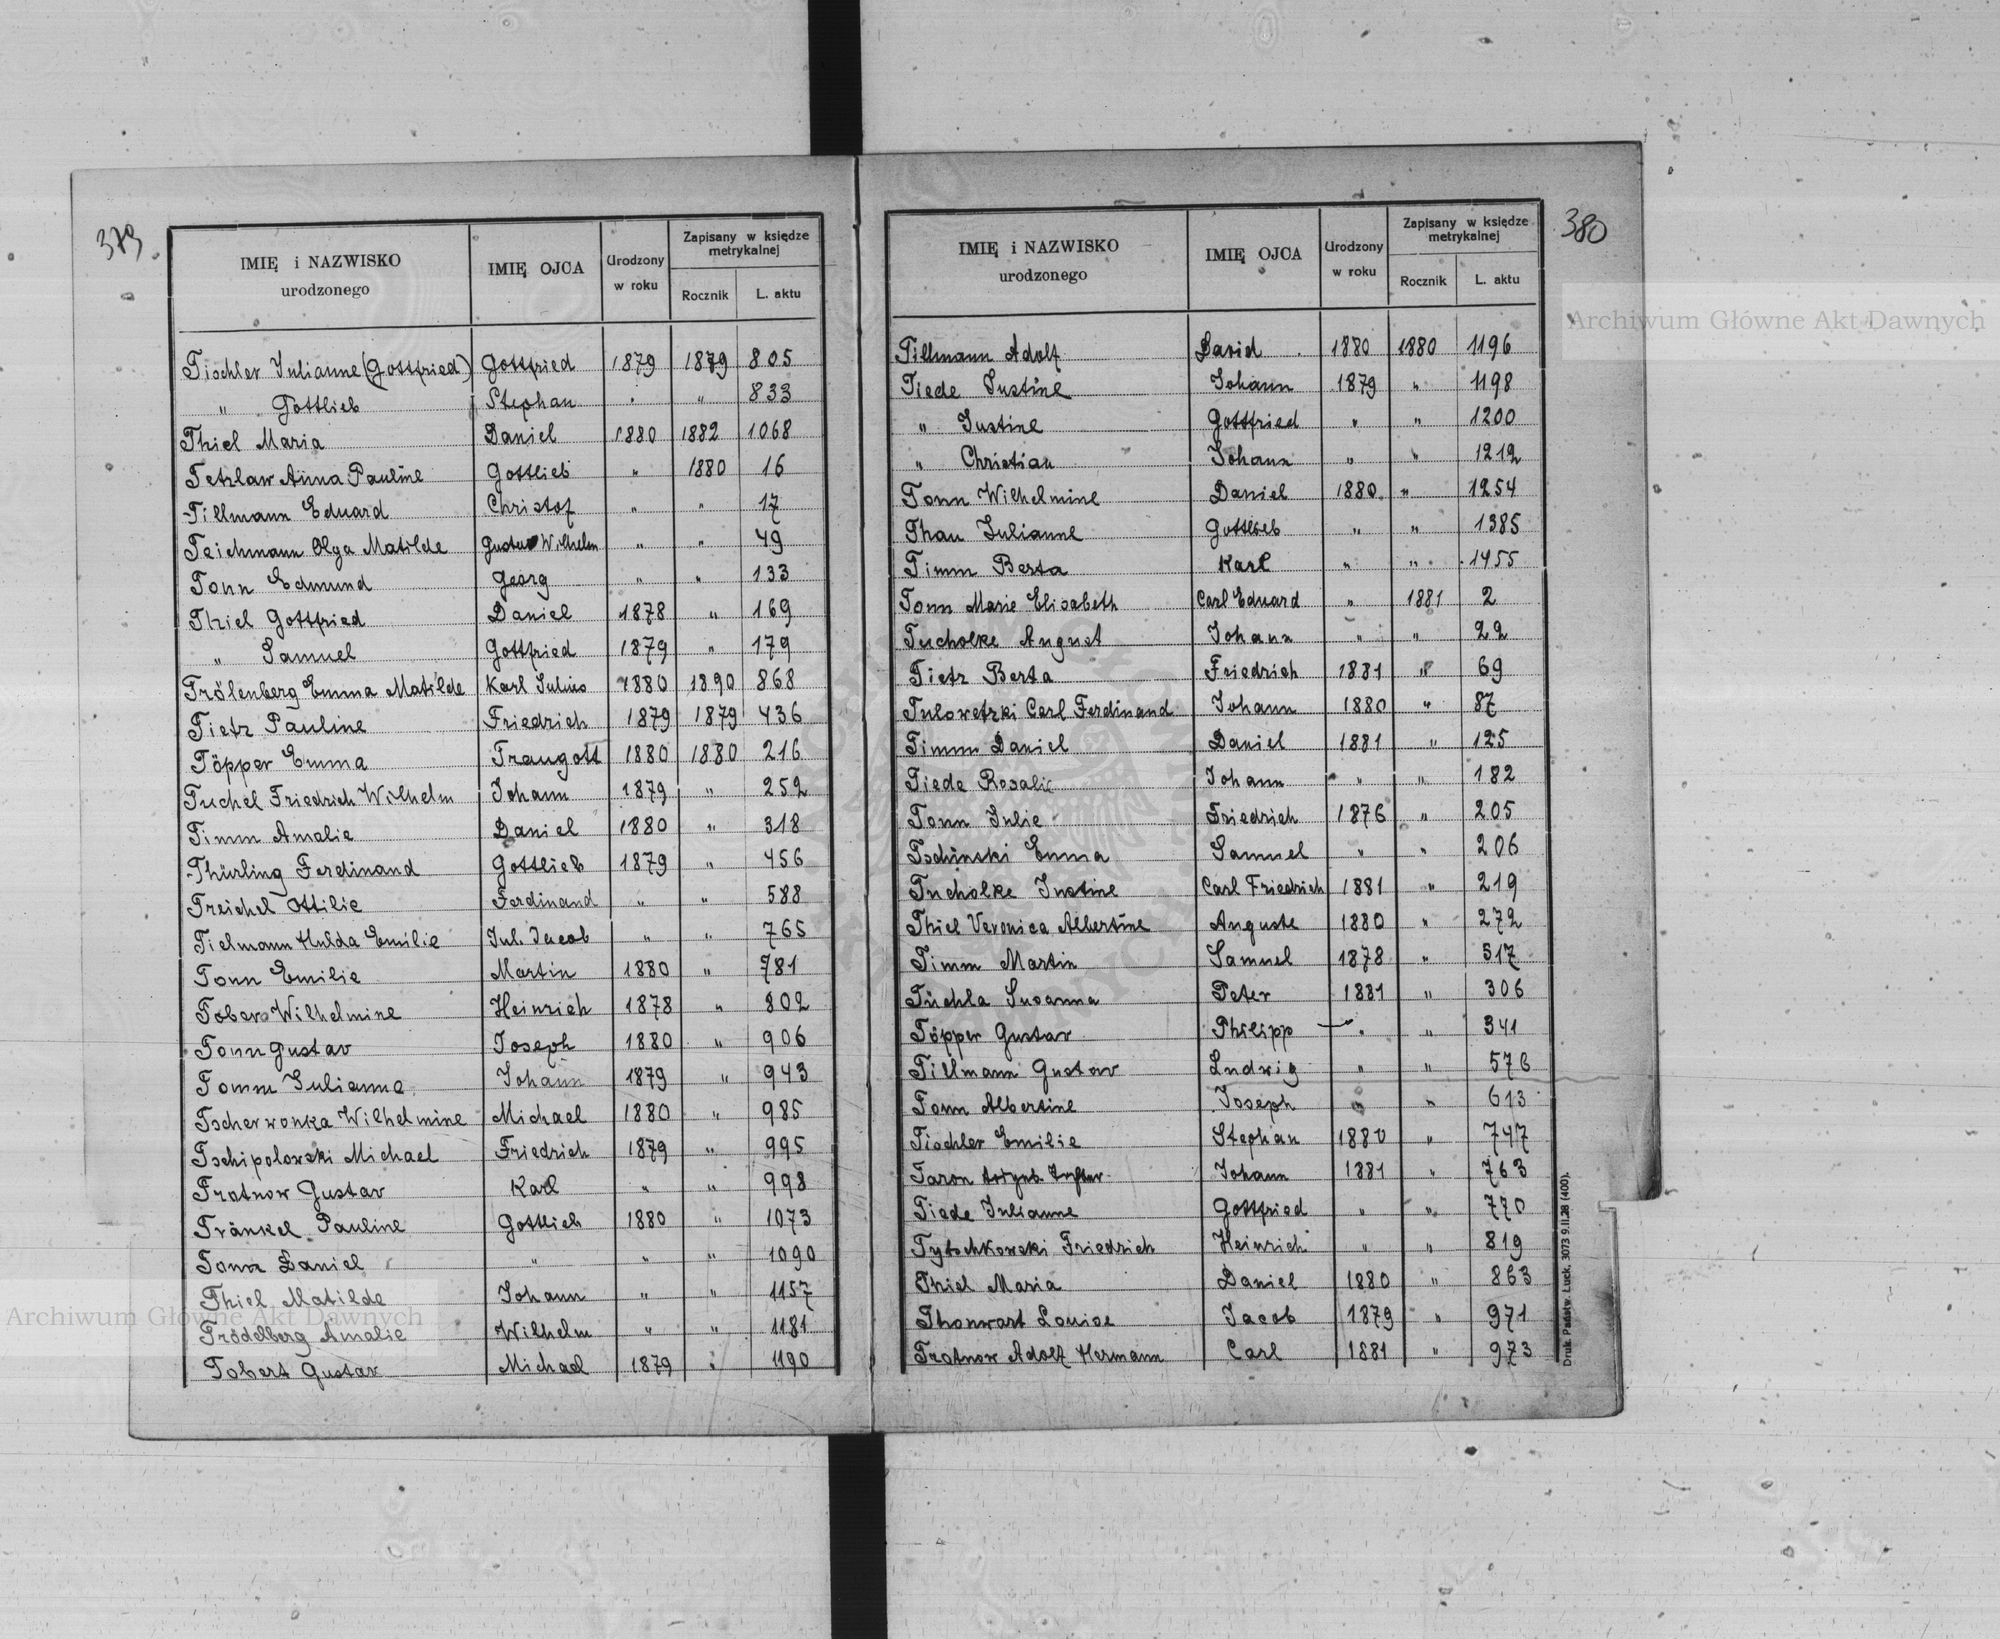 379
IMIĘ i NAZWISKO urodzonego IMIĘ OJCA Urodzony w roku Zapisany w księdze metrykalnej Rocznik L. aktu
Tischler Julianne (Gottfried) Gottfried 1879 1879 805
" Gottlieb Stephan " " 833
Thiel Maria Daniel 1880 1882 1068
Tetzlaw Anna Pauline Gottlieb " 1880 16
Tillmann Eduard Christof " " 17
Teichmann Olga Matilde Gustav Wilhelm " " 49
Tonn Edmund Georg " " 133
Thiel Gottfried Daniel 1878 " 169
" Samuel Gottfried 1879 " 179
Trölenberg Emma Matilde Karl Julius 1880 1890 868
Tietz Pauline Friedrich 1879 1879 436
Töpper Emma Traugott 1880 1880 216
Tuchel Friedrich Wilhelm Johann 1879 " 259
Timm Amalie Daniel 1880 " 318
Thürling Ferdinand Gottlieb 1879 " 456
Treichel Ottilie Ferdinand " " 588
Tielmann Hulda Emilie Jul. Jacob " " 765
Tonn Emilie Martin 1880 " 781
Tober Wilhelmine Heinrich 1878 " 802
Tonn Gustav Joseph 1880 " 906
Tomm Julianna Johann 1879 " 943
Tscherwonka Wilhelmine Michael 1880 " 985
Tschipolowski Michael Friedrich 1879 " 995
Tratnow Gustav Karl " " 998
Tränkel Pauline Gottlieb 1880 " 1073
Tonn Daniel " " " 1090
Thiel Matilde Johann " " 1157
Trödelberg Amalie Wilhelm " " 1181
Tobert Gustav Michael 1879 " 1190
380
IMIĘ i NAZWISKO urodzonego IMIĘ OJCA Urodzony w roku Zapisany w księdze metrykalnej Rocznik L. aktu
Tillmann Adolf David 1880 1880 1196
Tiede Justine Johann 1879 " 1198
" Justine Gottfried " " 1200
" Christian Johann " " 1212
Tonn Wilhelmine Daniel 1880 " 1254
Thau Julianne Gottlieb " " 1385
Timm Berta Karl " " 1455
Tonn Marie Elisabeth Carl Eduard " 1881 2
Tucholke August Johann " " 22
Tietz Berta Friedrich 1881 " 69
Tulowetzki Carl Ferdinand Johann 1880 " 87
Timm Daniel Daniel 1881 " 125
Tiede Rosalie Johann " " 182
Tonn Julie Friedrich 1876 " 205
Tschinski Emma Samuel " " 206
Tucholke Justine Carl Friedrich 1881 " 219
Thiel Veronica Albertine Auguste 1880 " 272
Timm Martin Samuel 1878 " 517
Tüchla Susanna Peter 1881 " 306
Töpper Gustav Philipp " " 341
Tillmann Gustav Ludwig " " 576
Tonn Albertine Joseph " " 613
Tischler Emilie Stephan 1880 " 747
Taron Johann 1881 " 763
Tiede Julianne Gottfried " " 770
Tytschkowski Friedrich Heinrich " " 819
Thiel Maria Daniel 1880 " 863
Thonwart Louise Jacob 1879 " 971
Tratnow Adolf Hermann Carl 1881 " 973
Druk. Państw. Łuck. 3073 9.II.28 (400).
Archiwum Główne Akt Dawnych
Archiwum Główne Akt Dawnych